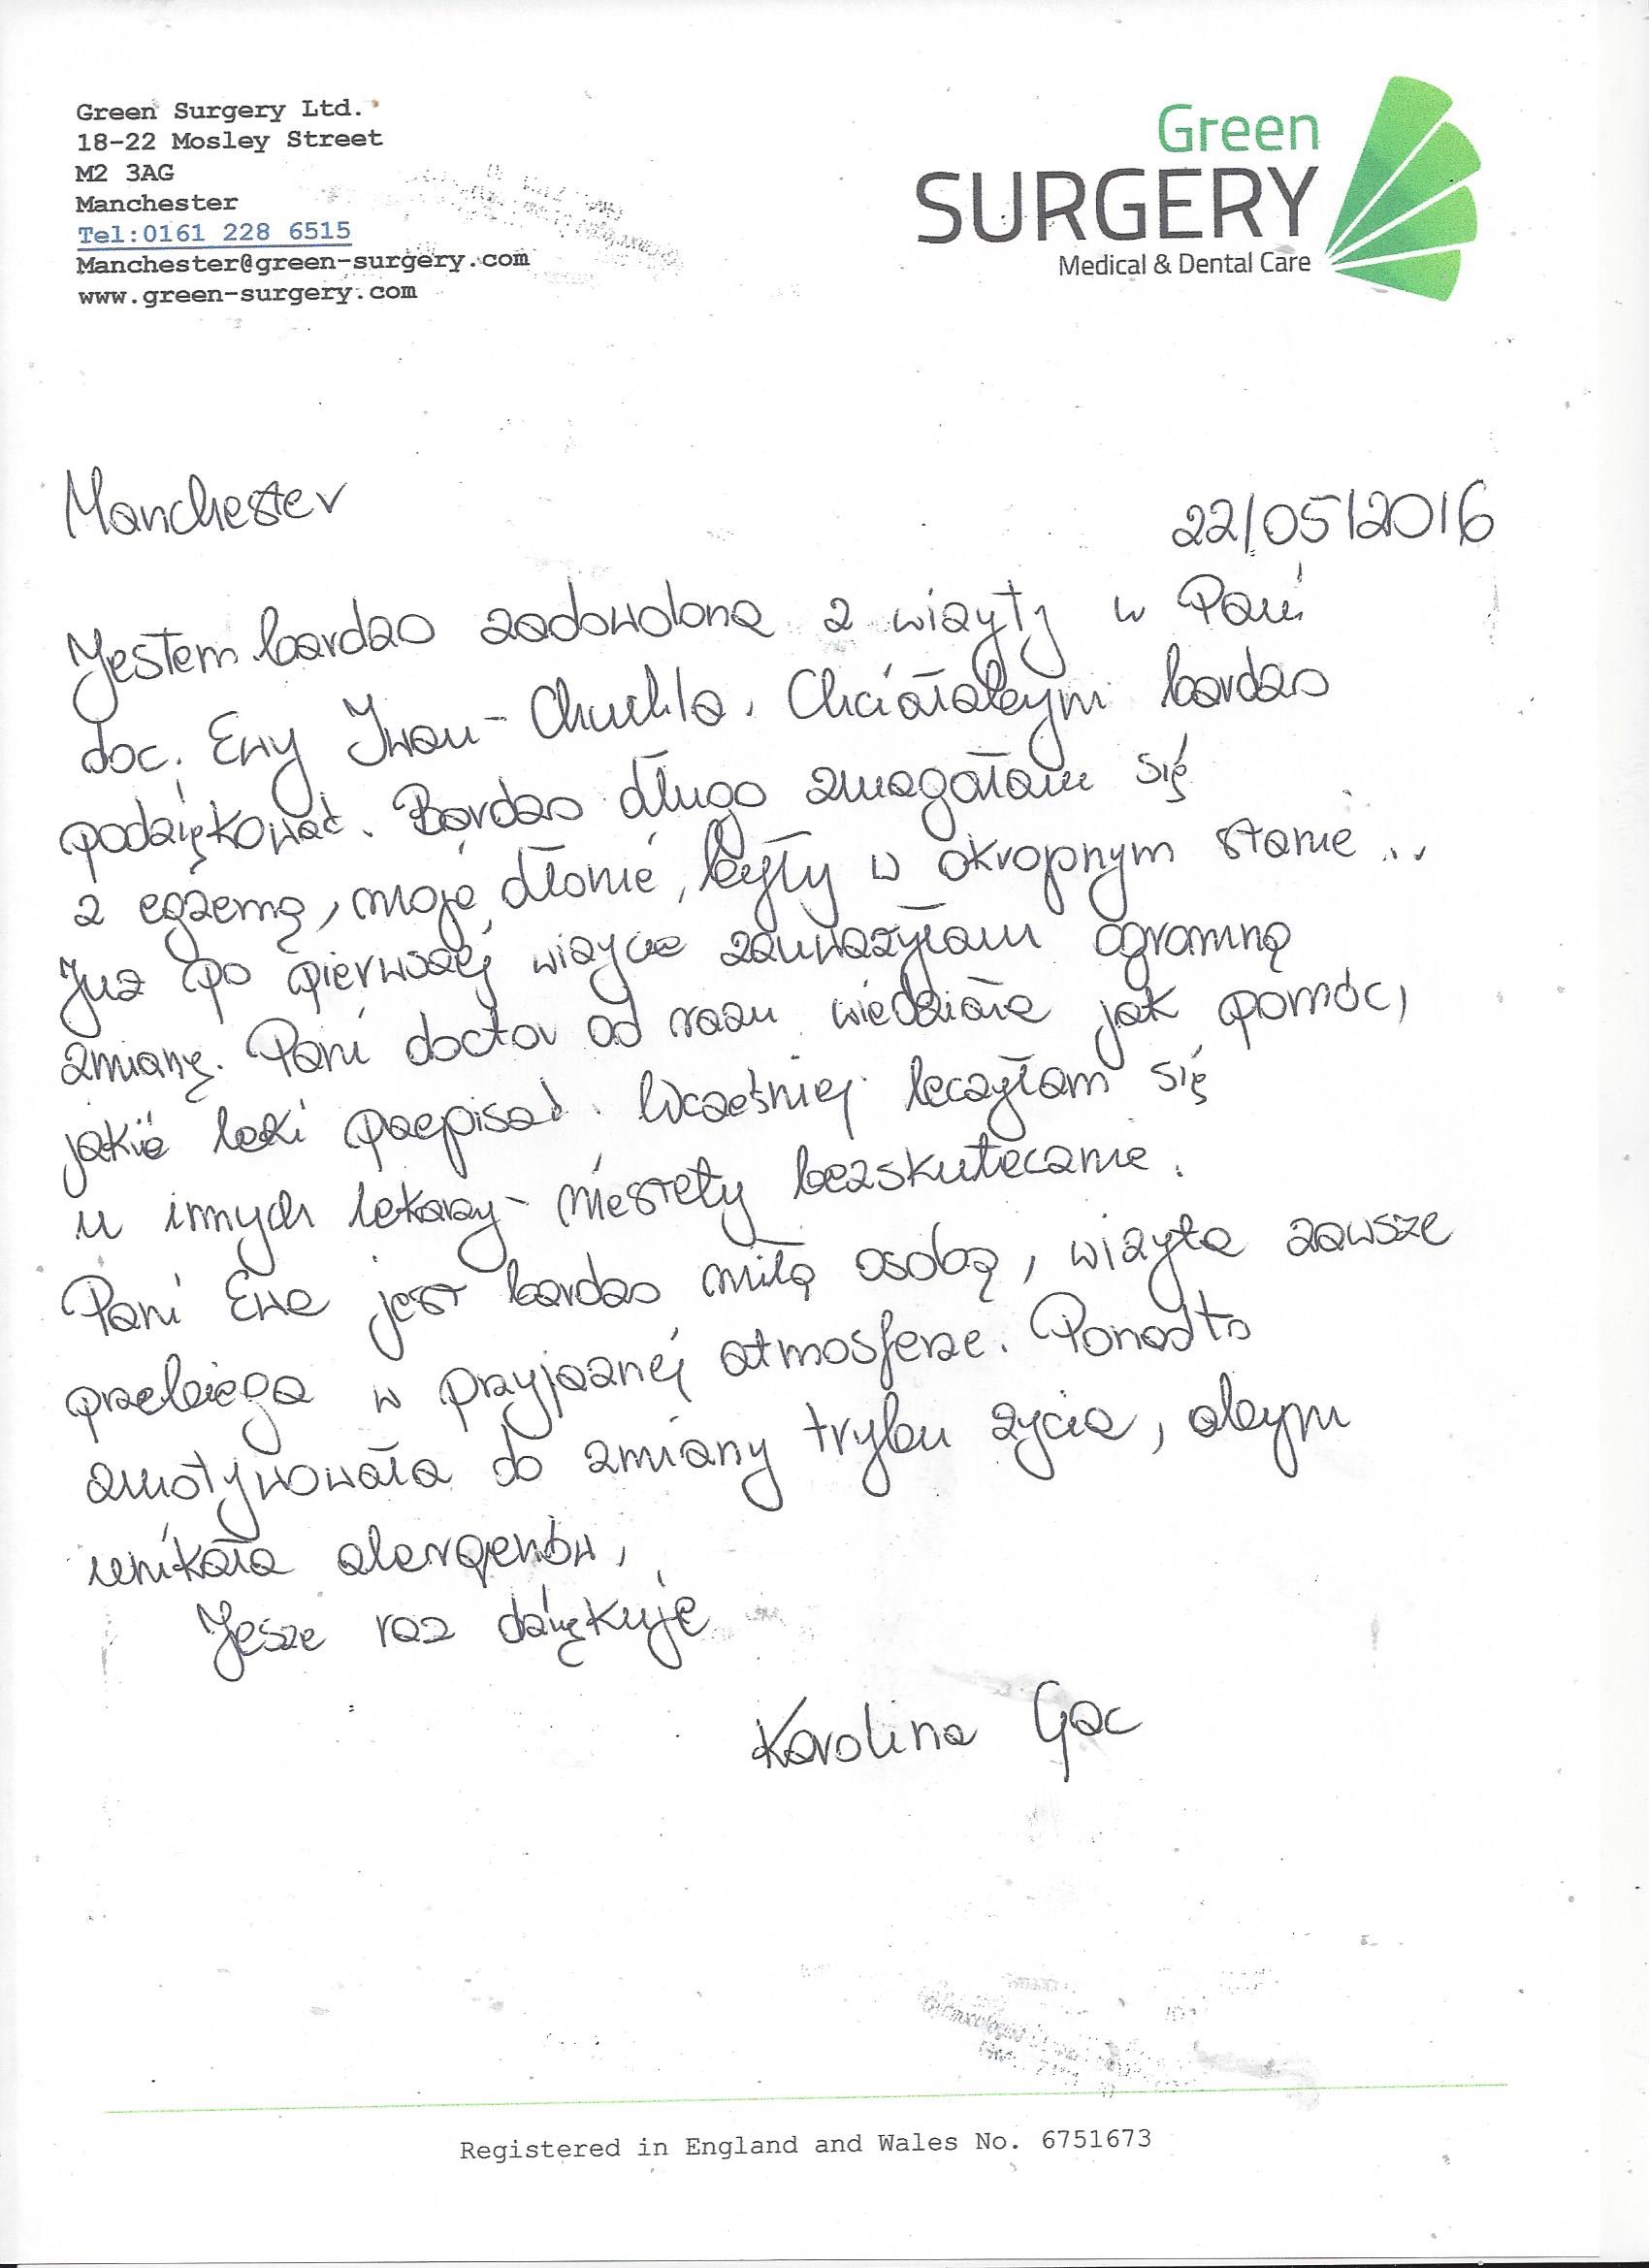 Green Surgery Ltd.
18-22 Mosley Street
M2 3AG
Manchester
Tel:0161 228 6515
Manchester@green-surgery.com
www.green-surgery.com
Green
SURGERY
Medical & Dental Care
Manchester 22/05/2016
Jestem bardzo zadowolona z wizyty w Pani
doc. Ewy Iwan-Chuchla. Chciałabym bardzo
podziękować. Bardzo długo zmagałam się
z egzemą, moje dłonie, były w okropnym stanie...
Już po pierwszej wizycie zauważyłam ogromną
zmianę. Pani doctor od razu wiedziała jak pomóc,
jakie leki przepisać. Wcześniej leczyłam się
u innych lekarzy - niestety bezskutecznie.
Pani Ewa jest bardzo miłą osobą, wizyta zawsze
przebiega w przyjaznej atmosferze. Ponadto
zmotywowała do zmiany trybu życia, abym
unikała alergenów,
Jesze raz dziękuję
Karolina Gac
Registered in England and Wales No. 6751673